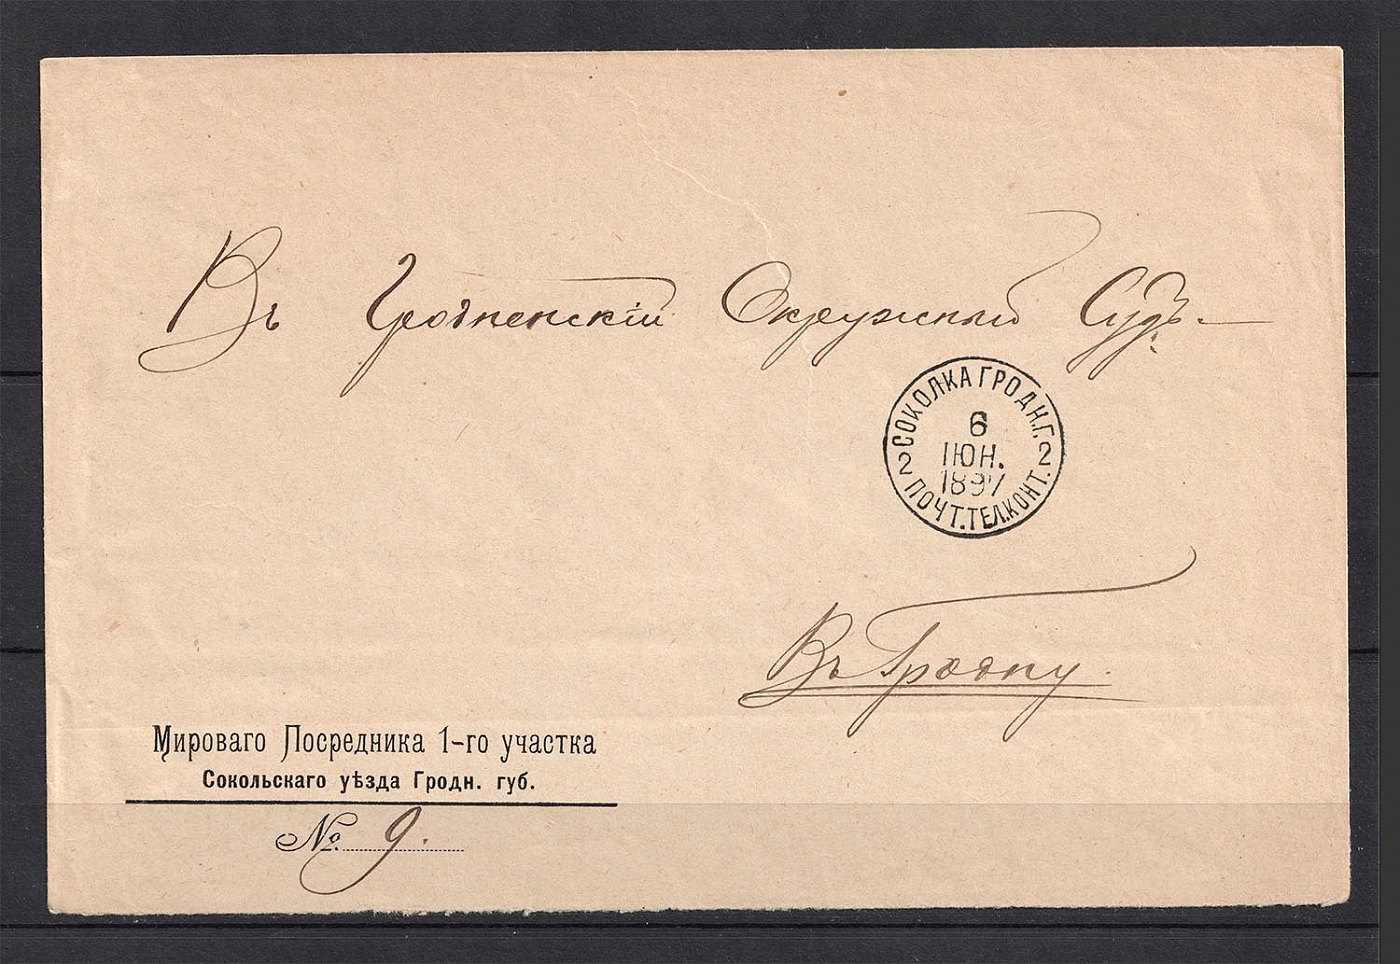 Въ Гродненскій Окружный Судъ.
СОКОЛКА ГРОДН.Г.
6
ІЮН.
1897
2 2
ПОЧТ.ТЕЛ.КОНТ.
Въ Гродну.
Мироваго Посредника 1-го участка
Сокольскаго уѣзда Гродн. губ.
№ 9.